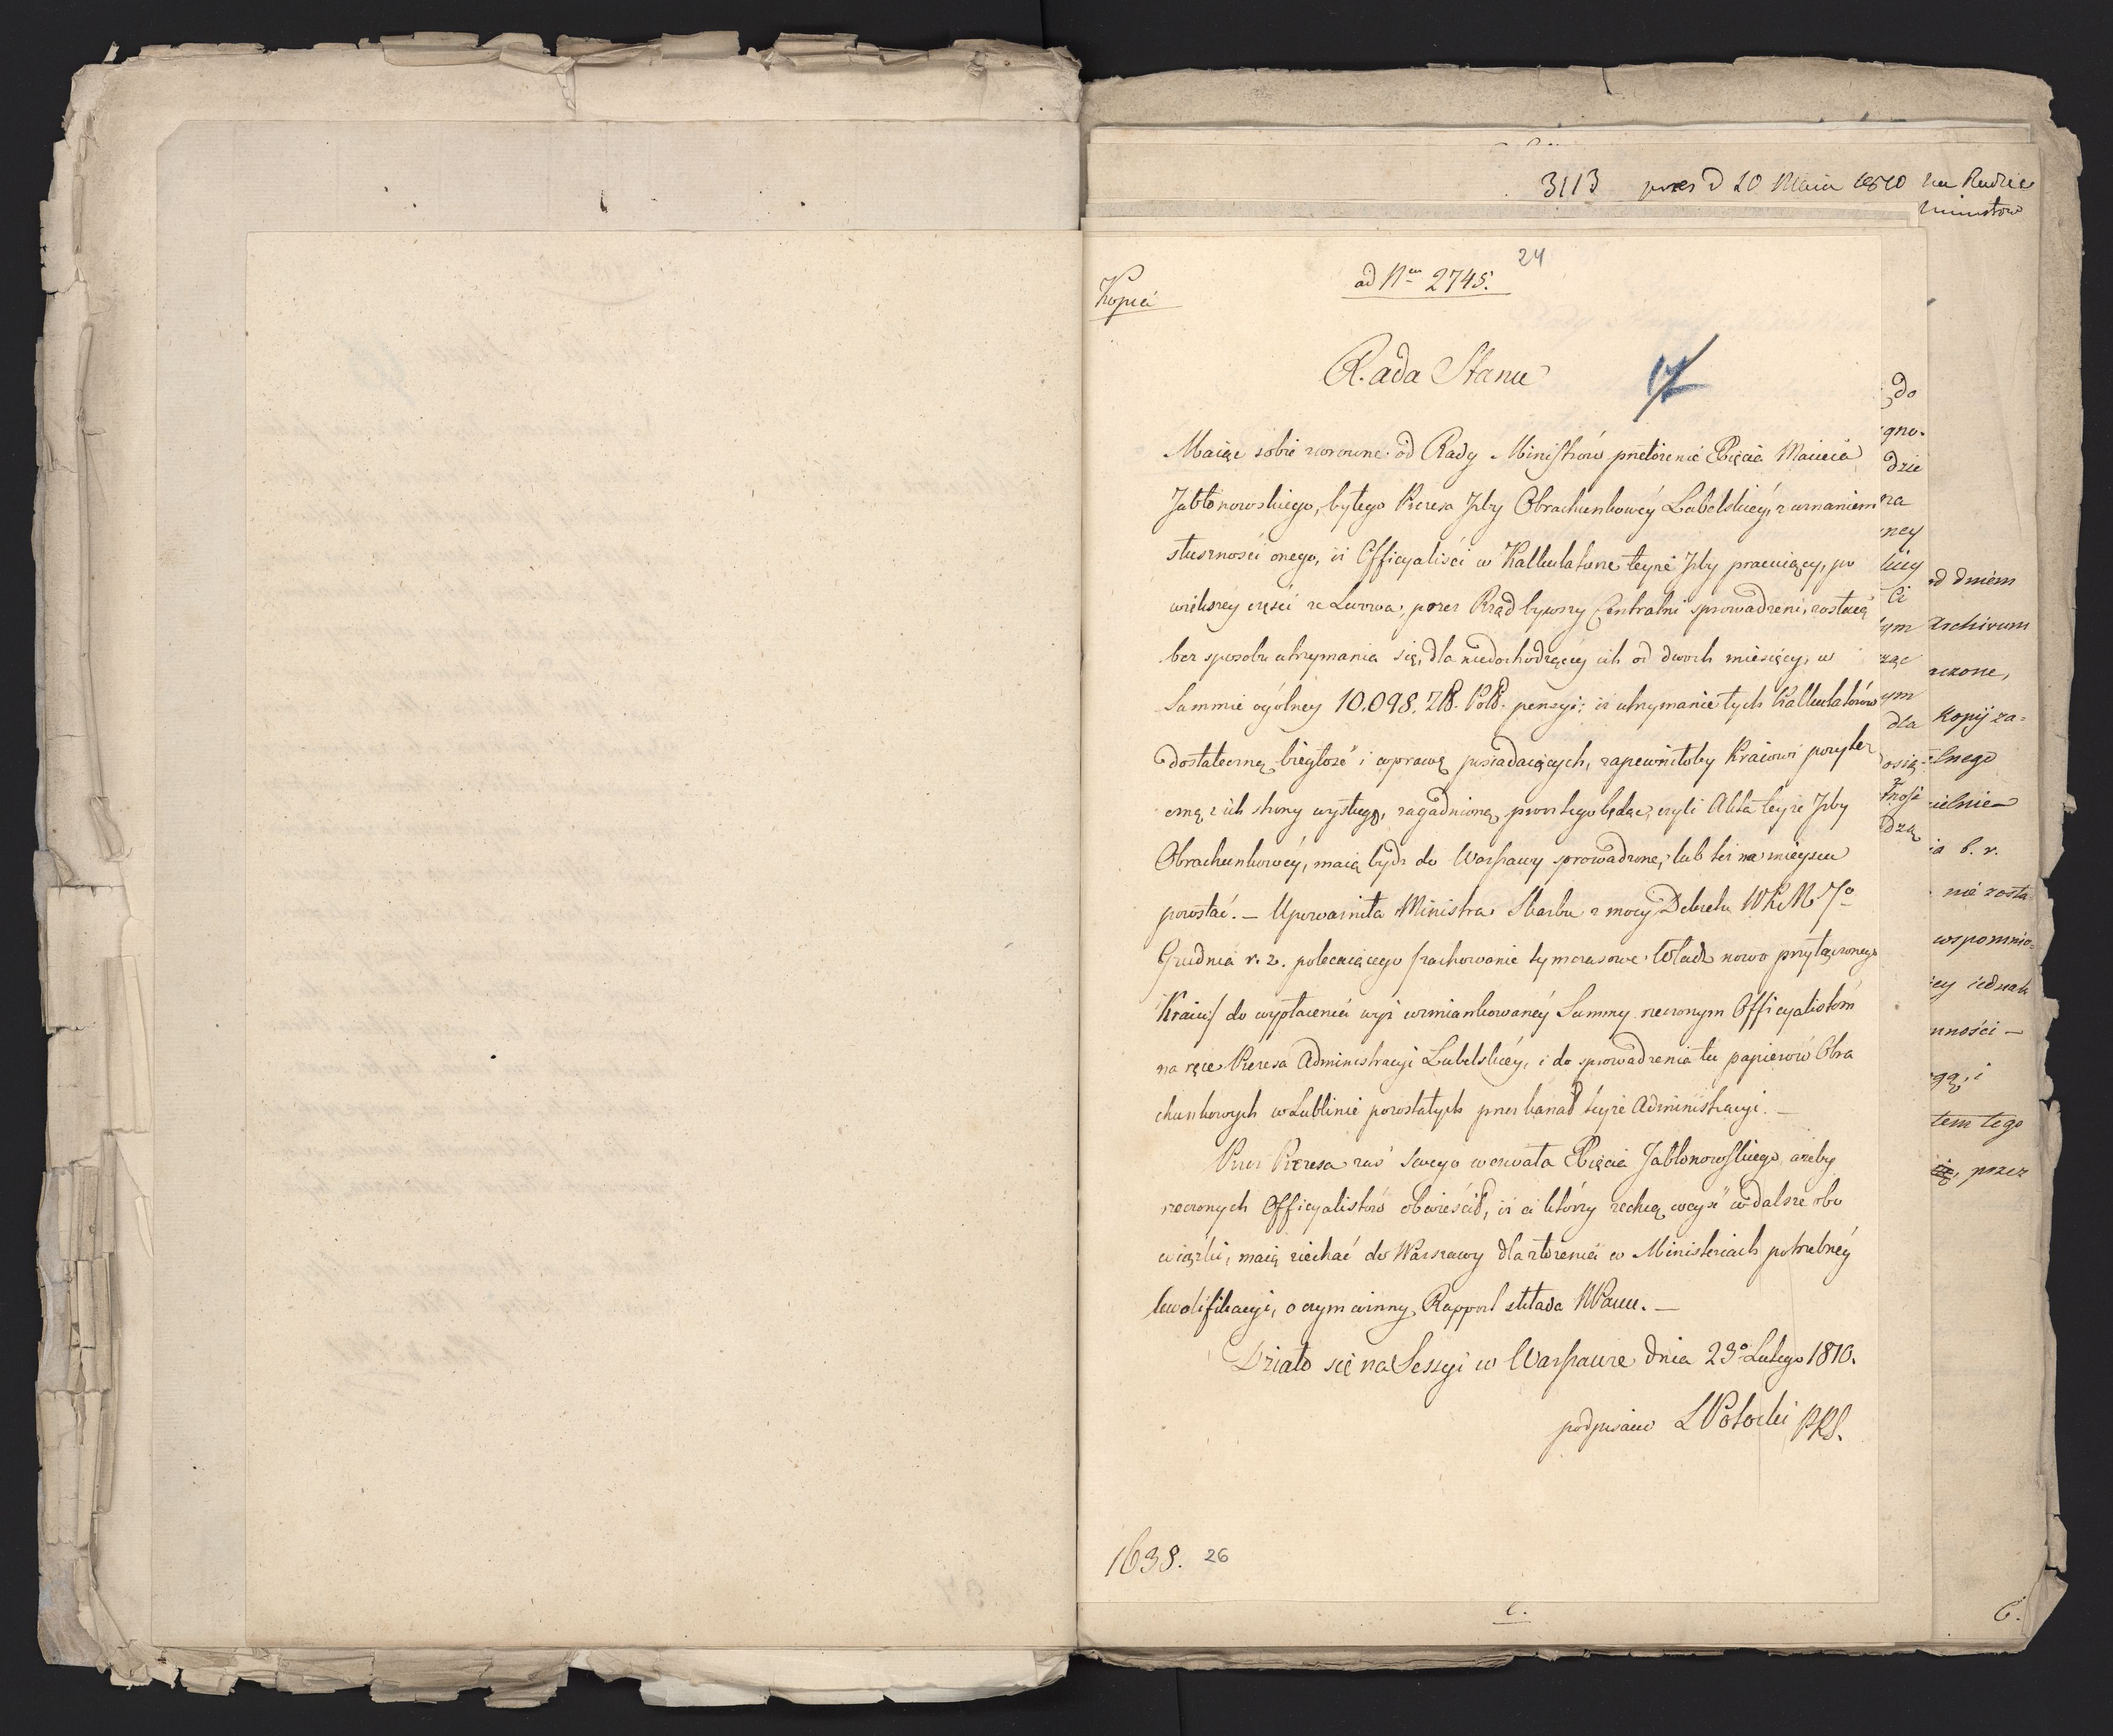 3113 prez d 10 Maia 1810 na Radzie
Ministrow
24
ad Nrm 2745.
Kopia
Rada Stanu
17
Maiąc sobie zwrocone od Rady Ministrów przełożenie Xięcia Macieia
Jabłonowskiego, byłego Prezesa Izby Obrachunkowéy Lubelskiéy, z uznaniem
słuszności onego, iż Officyaliści w Kalkulaturze teyże Izby pracuiący, po
większey części ze Lwowa, przez Rząd bywszy Centralni sprowadzeni, zostaią
bez sposobu utrzymania się, dla niedochodzącey ich od dwoch miesięcy, w
Summie ogólney 10.098. Złł. Poll. pensyi: iż utrzymanie tych Kalkulatorów
dostateczną biegłość i wprawę posiadaiących, zapewniłoby Kraiowi pożyte
czną z ich strony wysługę, zagadnioną prócz tego będąc, czyli Akta teyże Izby
Obrachunkowéy, maią bydź do Warszawy sprowadzone, lub też na mieyscu
pozostać. – Upoważniła Ministra Skarbu z mocy Dekretu WKM 7o
Grudnia r. z. polecaiącego /zachowanie tymczasowe Władz nowo przyłączonego
Kraiu/ do wypłacenia wyż wzmiankowanéy Summy rzeczonym Officyalistóm
na ręce Prezesa Administracyi Lubelskiéy, i do sprowadzenia tu papierów Obra
chunkowych w Lublinie pozostałych przez kanał teyże Administracyi. –
Przez Prezesa zaś swego wezwała Xięcia Jabłonowskiego, ażeby
rzeczonych Officyalistów obwieścił, iż ci którzy zechcą weyść w dalsze obo
wiązki, maią ziechać do Warszawy dla złożenia w Ministeriach potrzebnéy
kwalifikacyi, o czym winny Rapport składa WPanu. –
Działo się na Sessyi w Warszawie dnia 23o Lutego 1810.
podpisano S Potocki PRS.
1638. 26
do
gno.
dzie
ney
ym
dla
dzą
od dniem
Archivum
aczone,
Kopij za=
elnego
ielnie
ia b. r.
nié zosta
wspomnio=
iey iednak
nności –
gą, i
tem tego
przez
6.